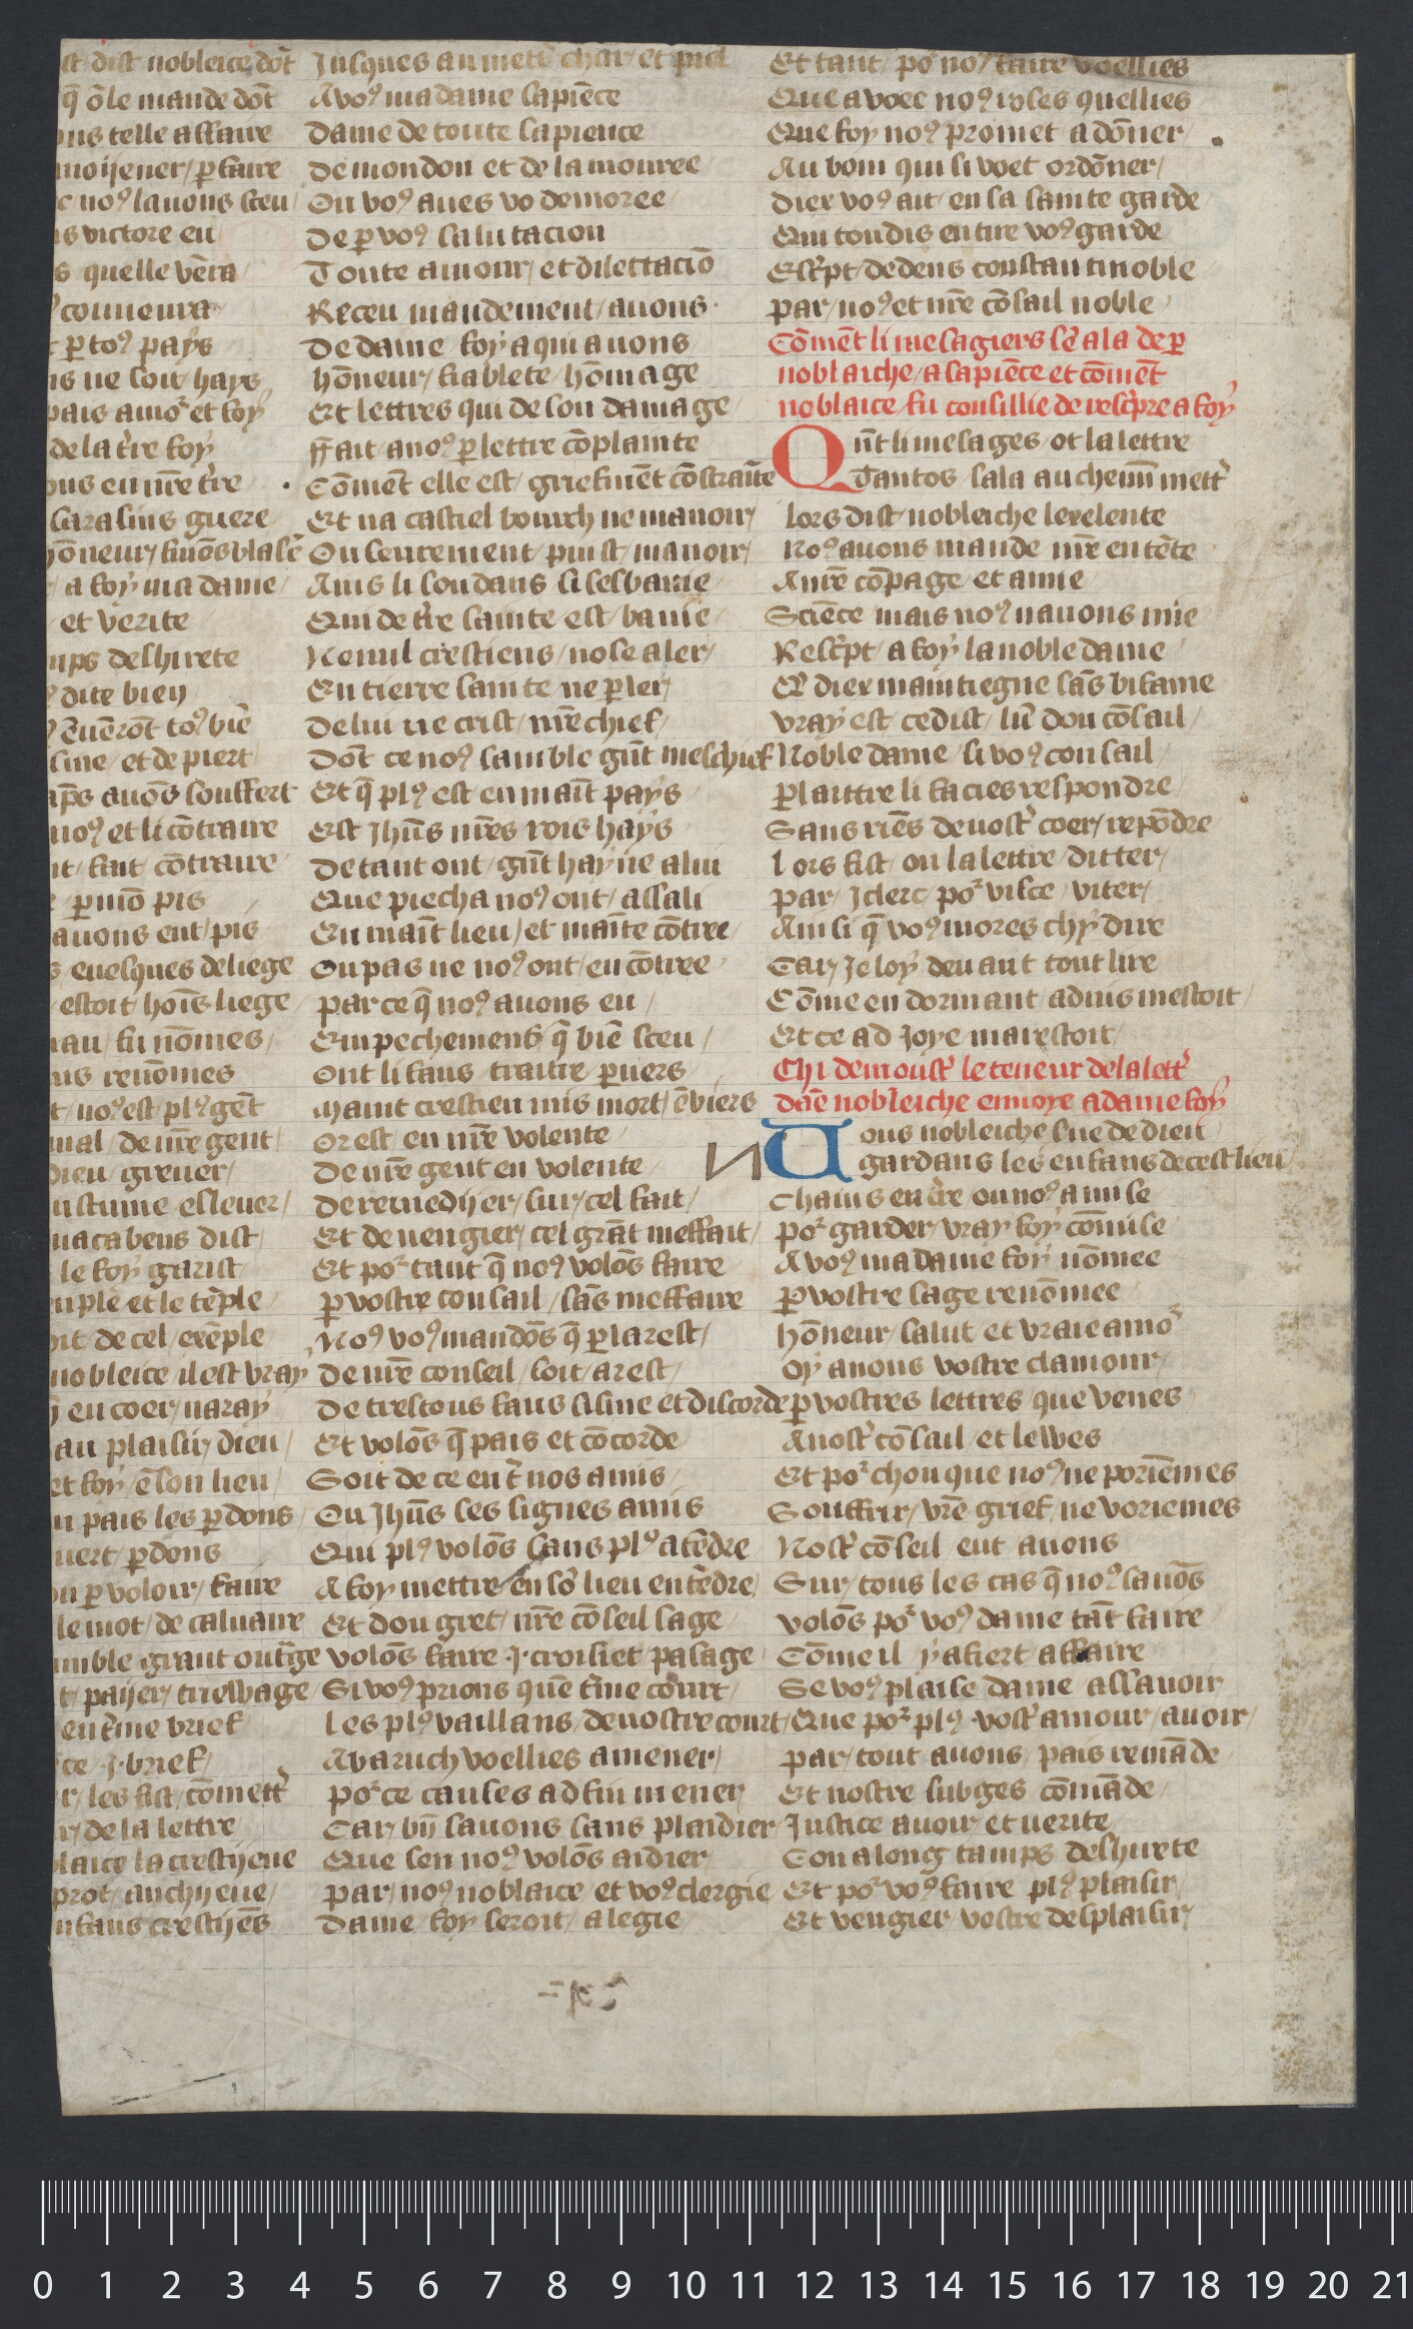 st dist nobleice dōt
q̄ ōle mande dōt
telle affaire
moijener / ꝑ faire
noꝰ lauons sceu
victore eu
quelle vēra
couuenra
ꝑ toꝰ pays
ne soit hays
pais amoʳ et foy
de la tr̄e foy
en nr̄e tr̄e
sarasins guere
a foy ma dame
et verite
deshirete
dite bien
ēuerōt toꝰ biē
sine / et de piert
auōs souffert
noꝰ et li cōtraire
fait cōtraire
ꝑ mō pis
auons eut / pis
euesques de liege
estoit hōīs liege
fu nōmes /
renōmes
noꝰ est plꝰ gēt
mal de nr̄e gent
dieu greuer /
esleuer /
macabeus dist
le foy garist
et le tēple
de cel / exēple
nobleice il est vray
en coer / naray
au plaisir / dieu /
et foy / ē son lieu /
pais les ꝑdons
ꝑdons
ꝑ voloir / faire
le mot / de caluaire
grant outr̄ge
payer / truewage
en tr̄me brief
ce .j. brief /
les fist / cōmettʳ
de la lettre
la crestijene
auchijene /
crestijēs
Jusques au mettʳ char / et piel
A voꝰ madame sapiēce
Dame de toute sapience
De mon don et de la mouree
Ou voꝰ aues vo demoree
De ꝑ voꝰ salutacion
Toute amour / et dilettaciō
Receu mandement / auons
De dame foy a qui auons
hōneur / fiablete / hōmage
Et lettres qui de son damage
ffait / a noꝰ ꝑ lettre cōplainte
Cōmēt elle est / griefmēt cōstrainte
Et na castiel bourch ne manoir
Ou seurement / puist / manoir /
Ains li soudans si ses banie
Qui de tr̄e sainte est / banie
Ne nul crestiens / nose aler /
En tierre sainte ne ꝑler /
De lui ne crist / nr̄e chief /
Dōt ce noꝰ samble gr̄nt meschief
Et q̄ plꝰ est en maīt pays
Est Jhūs nr̄es rois hays
De tant ont / gr̄nt hayne a lui
Que piecha noꝰ ont / assali
En maīt lieu / et maīte cōtree
Ou pas ne noꝰ ont / encōtree
Par ce q̄ noꝰ auons eu /
Empechement q̄ biē sceu /
Ont li faus traitre ꝑuers
Maint crestien mis mort / ēviers
Or est en nr̄e volente
De nr̄e gent en volente
De remedijer / sur / cel fait /
Et de uengier / cel grāt meffait /
Et poʳ tant q̄ noꝰ volōs faire
ꝑ vostre consail / sās meffaire
Noꝰ voꝰ mandōs q̄ ꝑ larest /
De nr̄e conseil / soit / arest /
De trestous faus sisme et discorde
Et volōs q̄ pais et cōcorde
Soit de ce en tʳ nos amis /
Ou Jhūs ses signes a mis
Qui plꝰ volōs sans plꝰ atēdre
A foy mettre en sō lieu entēdre
Et dou gret / nr̄e cōseil sage
volōs faire .j. croisiet pasage
Si voꝰ prions quē tr̄me court /
Les plꝰ vaillans / de uostre court /
A baruch voellies amener /
Poʳ ce causes ad fin mener
Car biī sauons sans plaidier
Que sen noꝰ volōs aidier
Par / noꝰ noblaice et voꝰ clergie
Dame / foy seroit / alegie /
Et tant / poʳ noꝰ faire voellies
Que avoec noꝰ roses quellies
Que foy noꝰ promet a dōner /
Au bom qui si voet ordōner /
Diex voꝰ ait / en sa sainte garde
Qui toudis en tire voꝰ garde
Escʳpt / dedens constantinoble
Par / noꝰ et nr̄e cōsail noble
Cōmēt li mesagiers sē ala de ꝑ
noblaiche / a sapiēce et cōmēt
noblaice / fu consillie de rescʳpre a foy
Qn̄t li mesages / ot la lettre
Tantos sala au chemin mettʳ
Lors dist nobleiche lexelente
Noꝰ auons mande nr̄e entēte
A nr̄e cōpage / et amie
Sciēce mais noꝰ nauons mie
Rescʳpt / a foy la noble dame
Qʳ diex maintiegne sās bifame
Vray est ce dist / lū dou cōsail /
Noble dame / si voꝰ consail
ꝑ la lttre li facies respondre
Sans riēs de uostʳ coer / repōdre
Lors fist / on la lettre / ditter /
Par / J clerc poʳ visce / viter /
Ainsi q̄ voꝰ mores chy dire
Car / Je loy deuant tout lire
Cōme en dormant admis mestoit
Et ce ad joye marestoit /
Chi demoustʳ le teneur de la lettʳ
dāe nobleiche enuoye a dame foy
N
Nous nobleiche lue de dieu
gardans les enfans de cest lieu
Chains en tr̄e ou noꝰ a mise
Poʳ garder / vray foy cōmise
A voꝰ madame foy nōmee
ꝑ vostre sage renōmee
hōneur / salut et vraie amoʳ
Oy auons vostre clamour
ꝑ vostres lettres que venes
A nostʳ cōsail et lewes
Et poʳ chou que noꝰ ne poriēmes
Souffrir / vr̄e grief ne voriemes
Nostʳ cōseil eut auons
Sur / tous les cas q̄ noꝰ sauōs
Volōs poʳ voꝰ dame tāt faire
Cōme il y afiert affaire
Se voꝰ plaise dame assauoir
Que poʳ plꝰ vostʳ amour / auoir /
Par / tout auons pais remāde
Et nostre subges cōmāde /
Justice auoir et uerite
Con a long tamps deshirete
Et poʳ voꝰ faire plꝰ plaisir
Et vengier / vostre desplaisir /